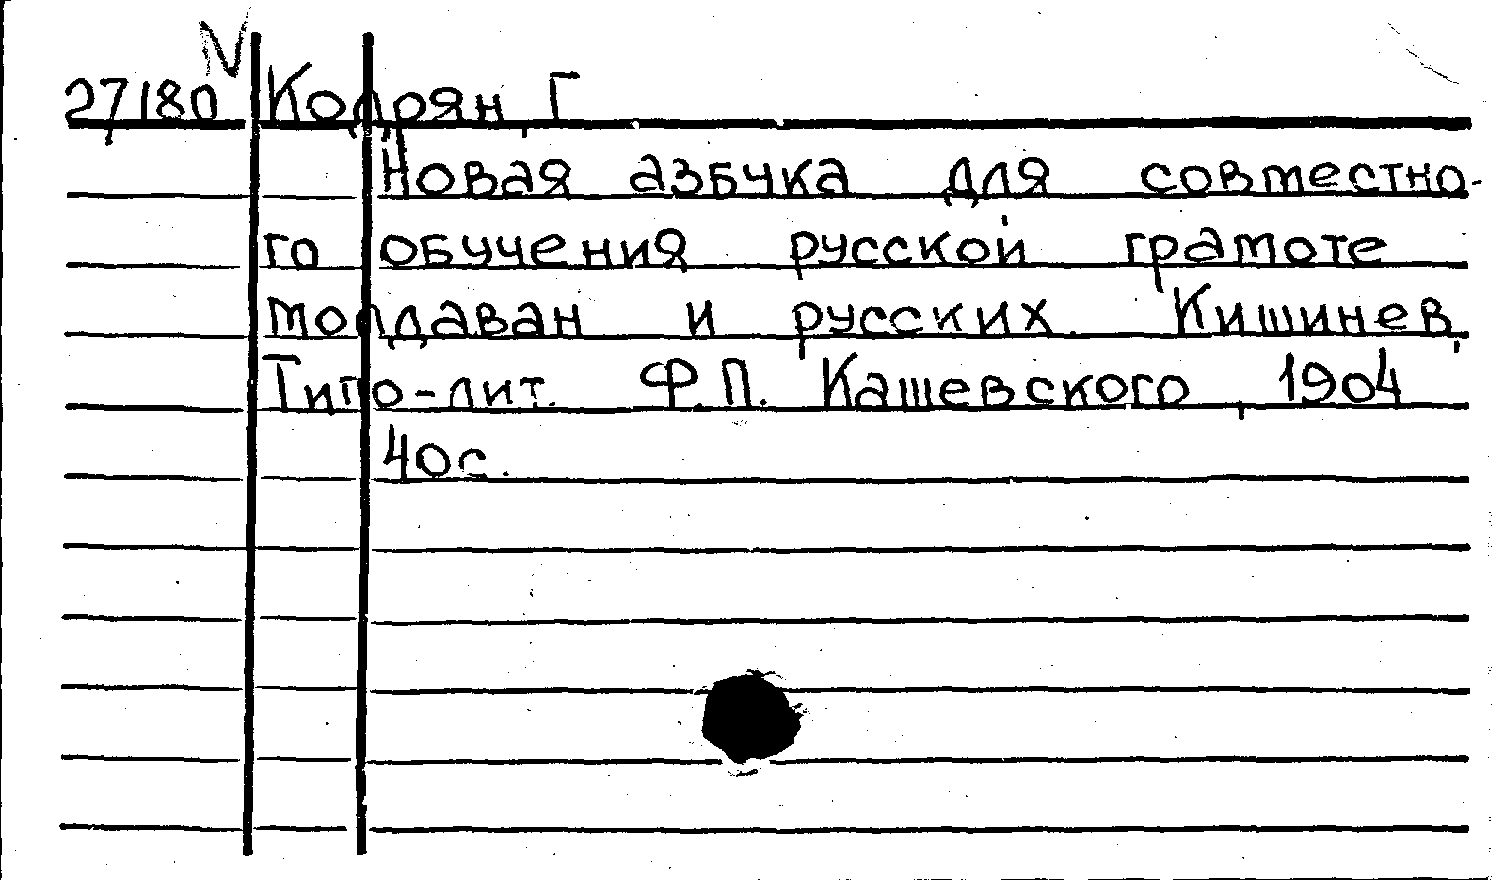 N
27180 Кодрян, Г
Новая азбука для совместно-
го обучения русской грамоте
молдаван и русских. Кишинев,
Типо-лит. Ф.П. Кашевского, 1904
40с.